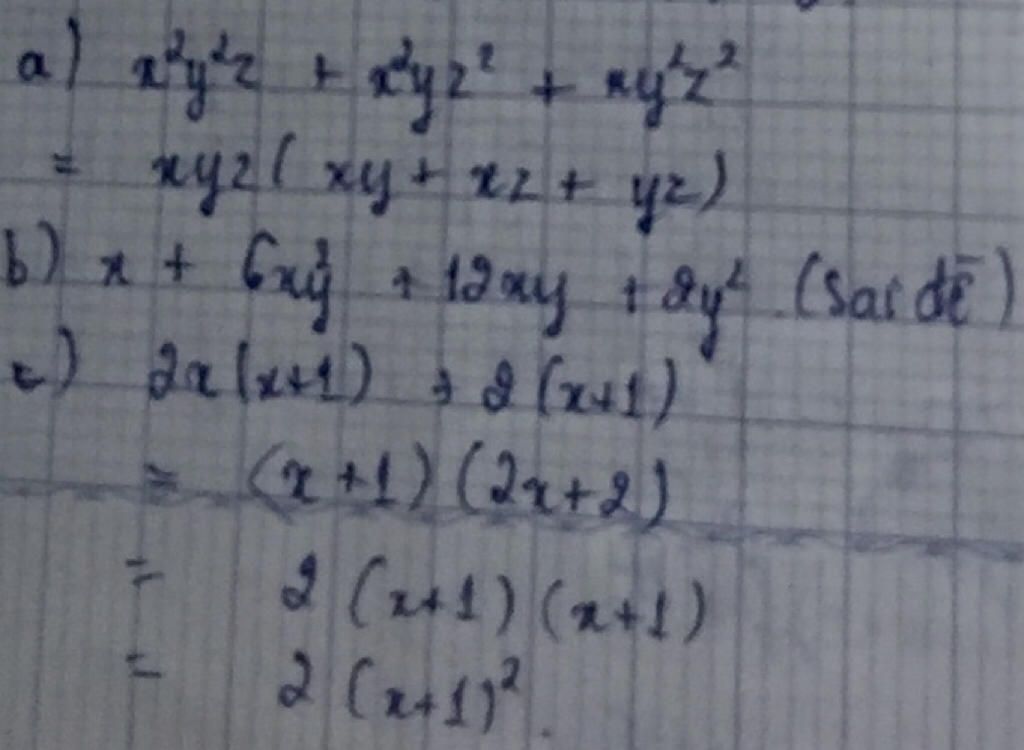 a) x²y²z + x²yz² + xy²z²
= xyz( xy + xz + yz)
b) x + 6xy² + 12xy + 2y² (Sai đề)
c) 2x(x+1) + 2(x+1)
= (x+1)(2x+2)
= 2(x+1)(x+1)
= 2(x+1)².